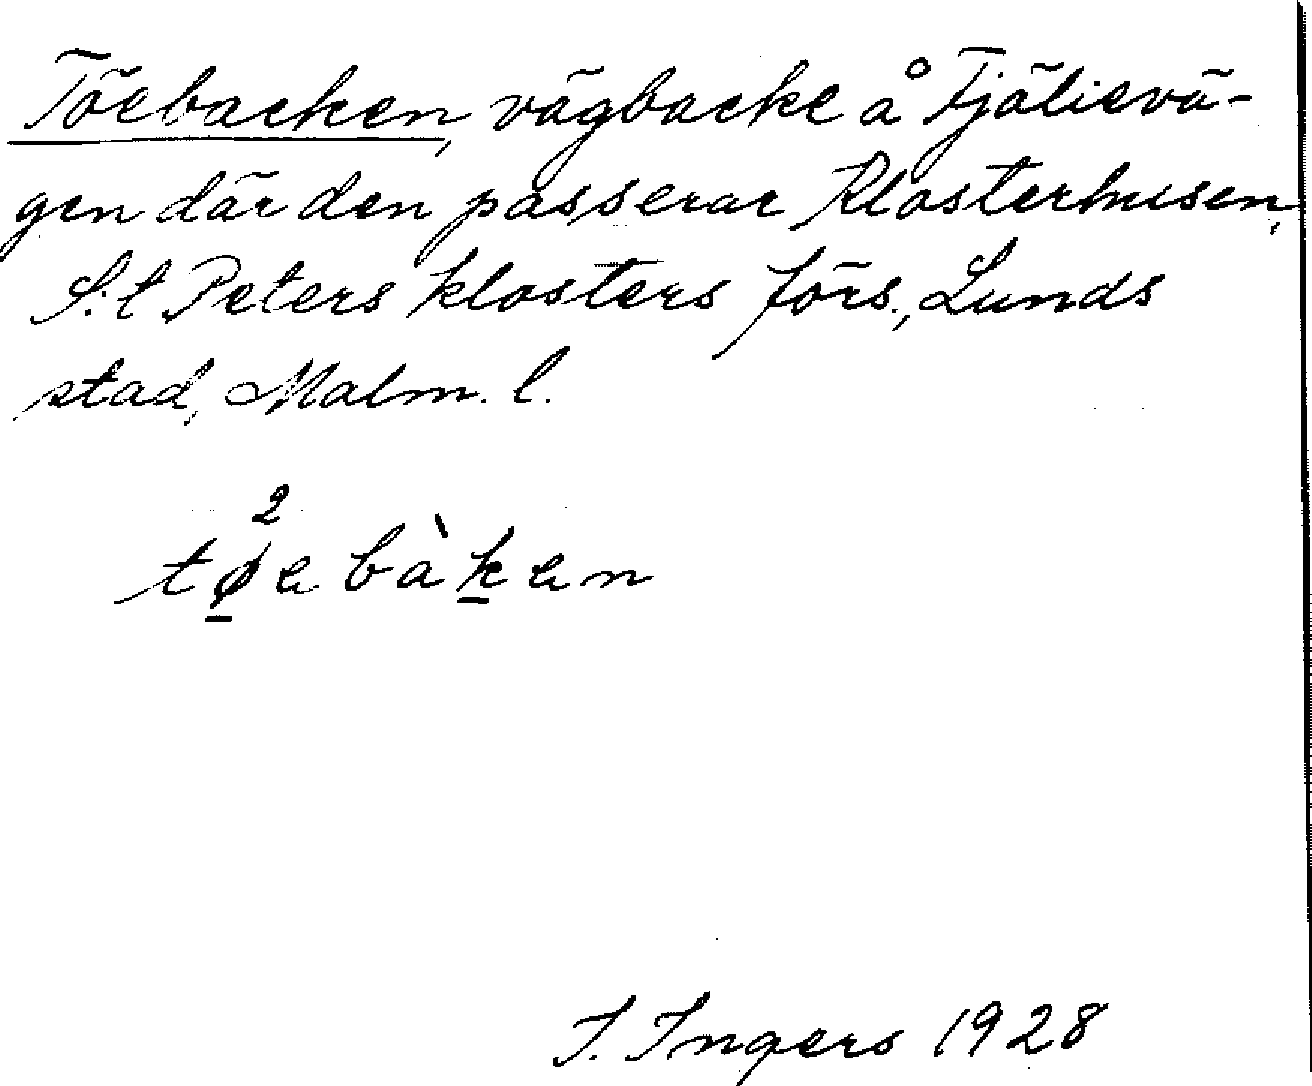 Töebacken, vägbacke å Fjälievä-
gen där den passerar Klosterhusen,
S:t Peters klosters förs., Lunds
stad, Malm. l.
2
tø̱ebàḵen
I. Ingers 1928